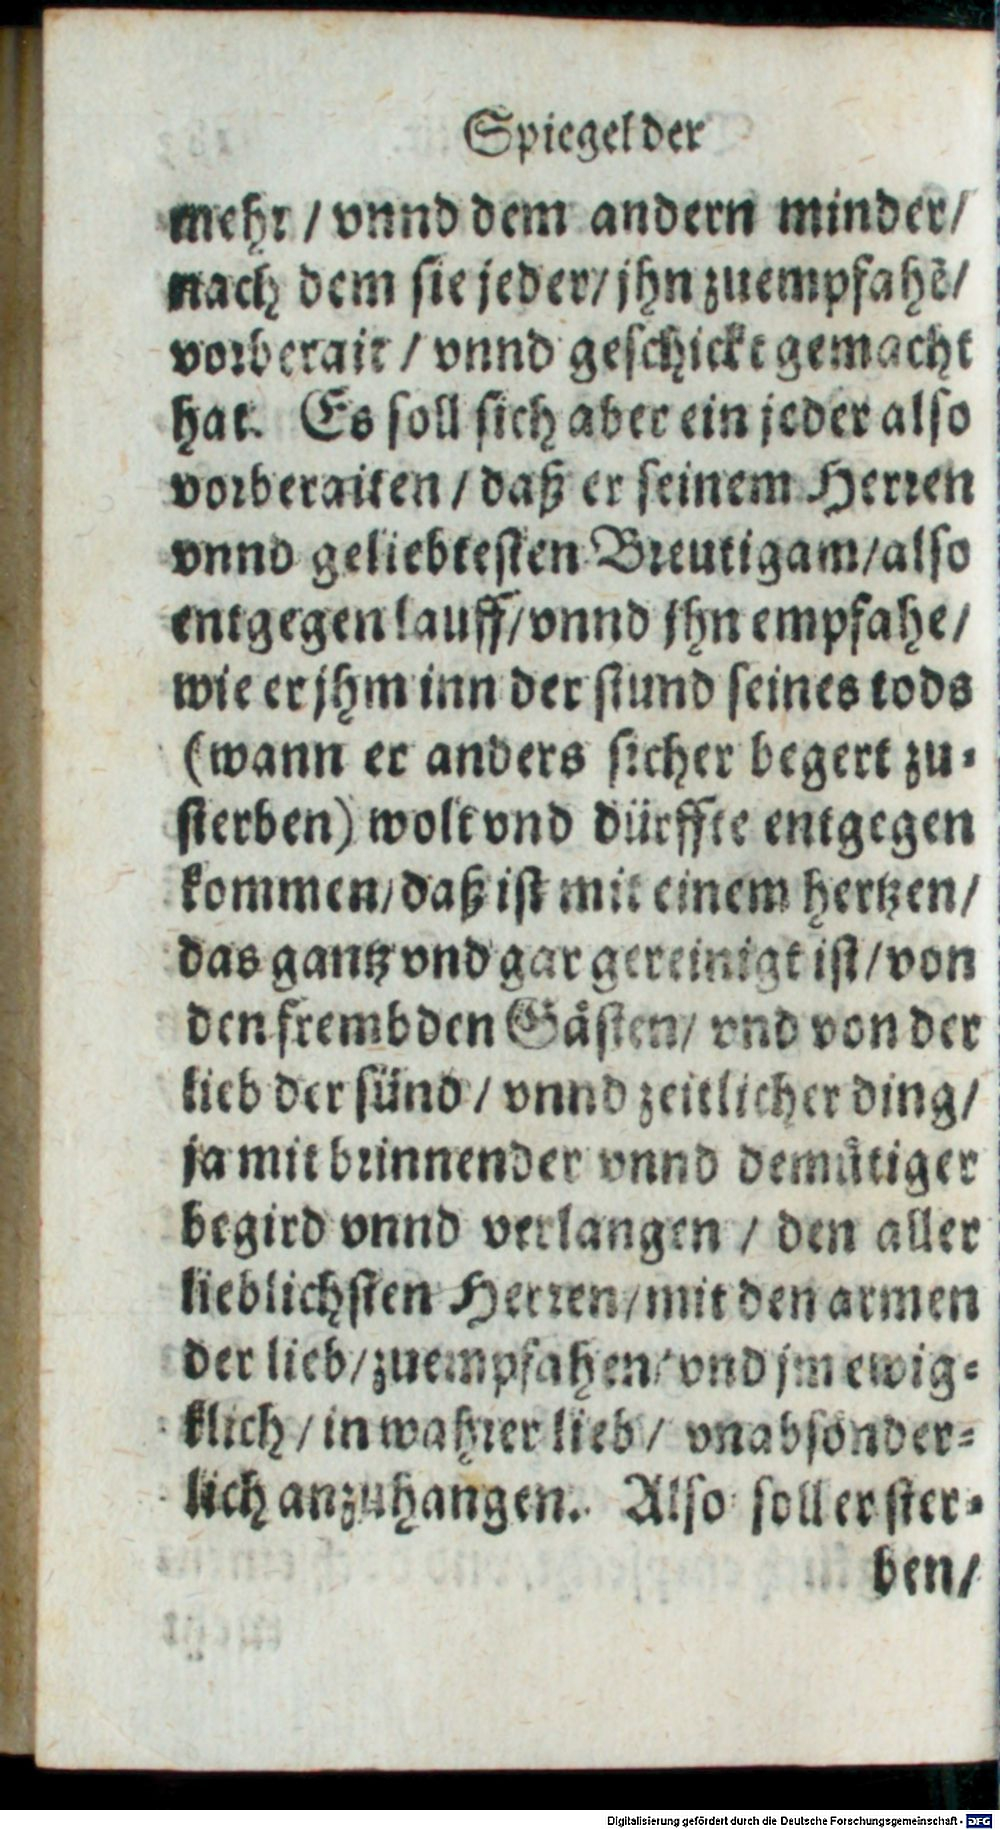 Spiegel der
mehr / vnnd dem andern minder /
nach dem sie jeder / jhn zuempfahẽ /
vorberait / vnnd geschickt gemacht
hat. Es soll sich aber ein jeder also
vorberaiten / daß er seinem Herren
vnnd geliebtesten Breutigam / also
entgegen lauff / vnnd jhn empfahe /
wie er jhm inn der stund seines tods
(wann er anders sicher begert zu-
sterben) wolt vnd dürffte entgegen
kommen / daß ist mit einem hertzen /
das gantz vnd gar gereinigt ist / von
den frembden Gåsten / vnd von der
lieb der sünd / vnnd zeitlicher ding /
ja mit brinnender vnnd demütiger
begird vnnd verlangen / den aller
lieblichsten Herren / mit den armen
der lieb / zuempfahen / vnd jm ewig-
klich / in wahrer lieb / vnabsönder-
lich anzuhangen. Also soll er ster-
ben /
Digitalisierung gefördert durch die Deutsche Forschungsgemeinschaft - DFG